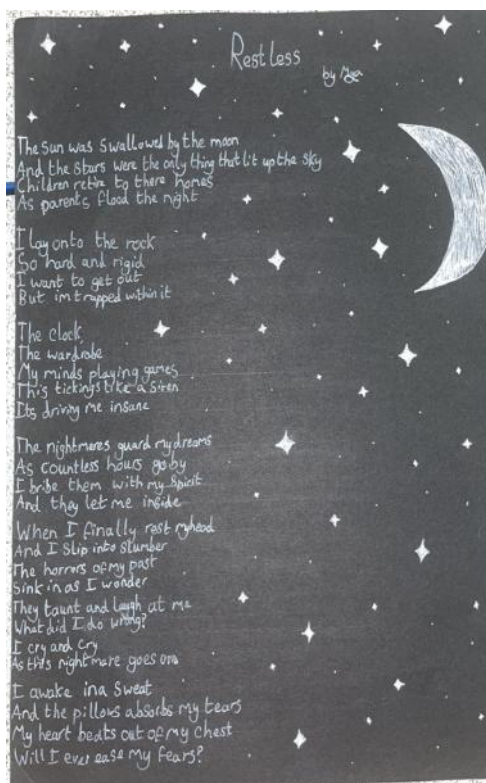 Restless
by
The sun was swallowed by the moon
And the stars were the only thing that lit up the sky
Children retire to there homes
As parents flood the night
I lay onto the rock
So hard and rigid
I want to get out
But im trapped within it
The clock
The wardrobe
My minds playing games
This tickings like a siren
Its driving me insane
The nightmares guard my dreams
As countless hours go by
I bribe them with my spirit
And they let me inside
When I finally rest my head
And I slip into slumber
The horrors of my past
Sink in as I wonder
They taunt and laugh at me
What did I do wrong?
I cry and cry
As this nightmare goes on
I awake in a sweat
And the pillows absorbs my tears
My heart beats out of my chest
Will I ever ease my fears?